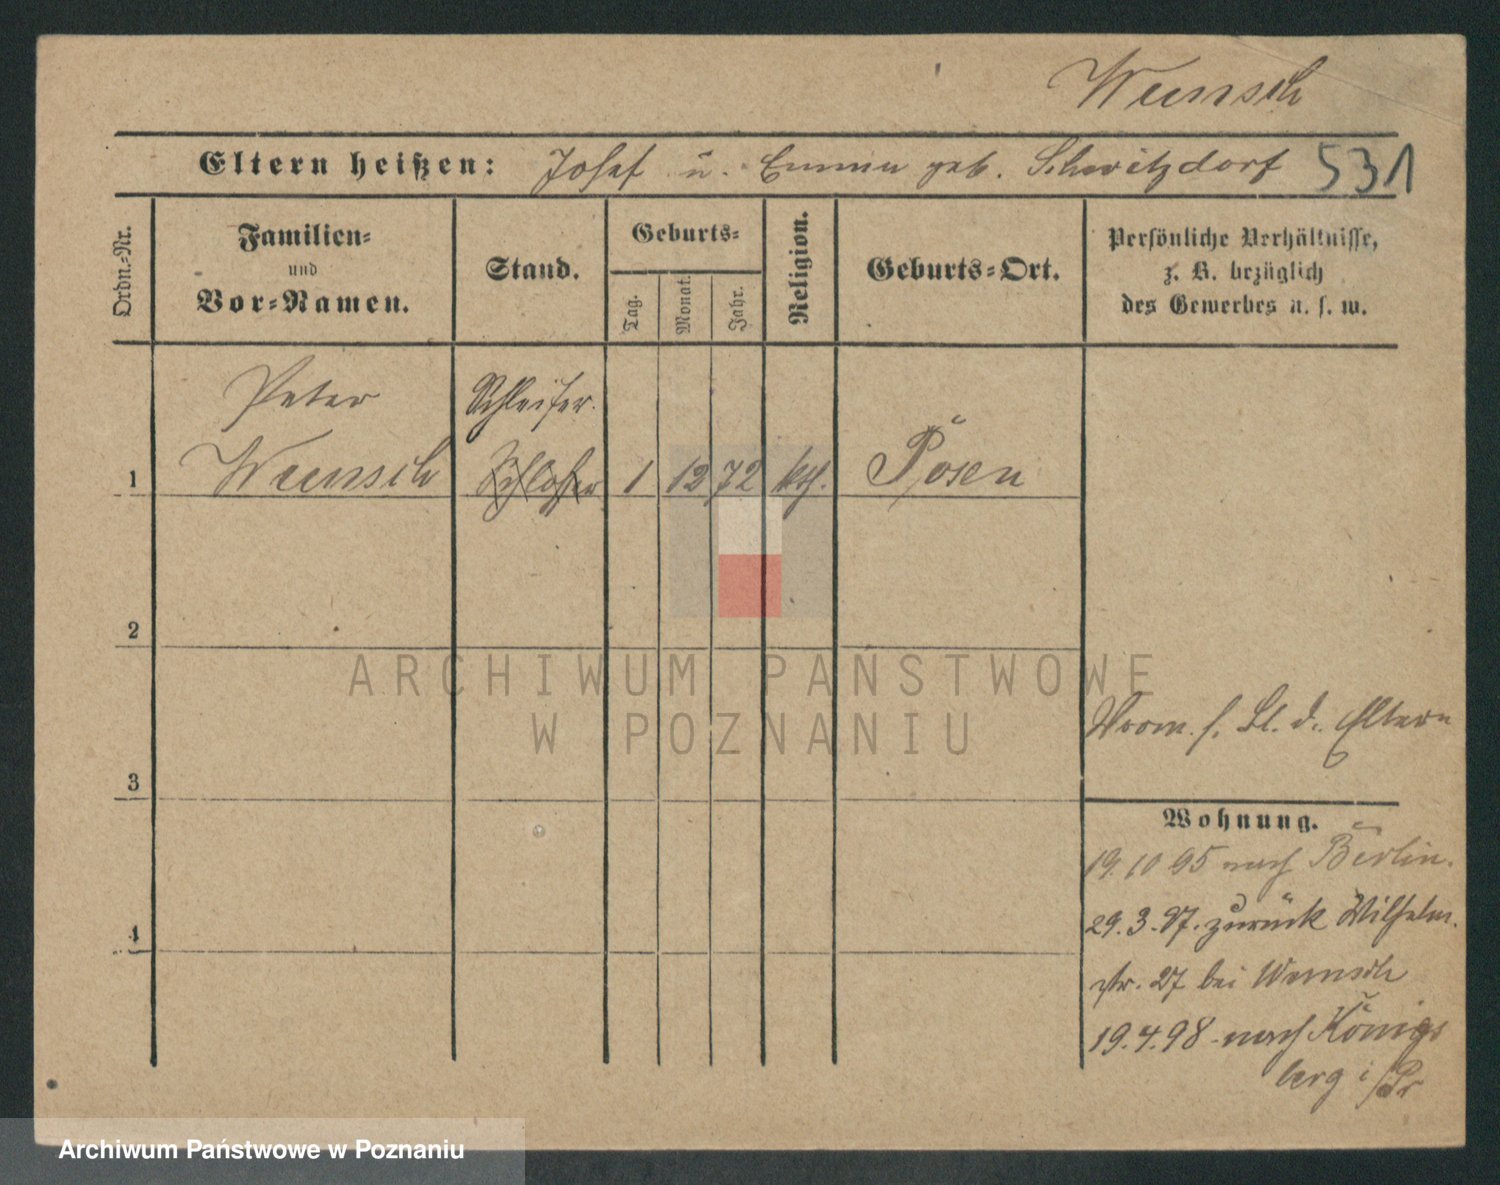 Wunsch
Eltern heißen: Josef u. Emma geb. Schwitzdorf 531
Ordn.-Nr.
Familien-
und
Vor-Namen.
Stand.
Geburts-
Tag.
Monat.
Jahr.
Religion.
Geburts-Ort.
Persönliche Verhältnisse,
z. B. bezüglich
des Gewerbes u. s. w.
Peter Schleifer.
1 Wunsch Schlosser 1 12 72 kth. Posen
2
3
4
ARCHIWUM PAŃSTWOWE
W POZNANIU
s. Bl. d. Eltern
Wohnung.
19.10 95 nach Berlin.
29.3.97. zurück Wilhelm.
str. 27 bei Wunsch
19.4.98 nach Königs
berg i/Pr
Archiwum Państwowe w Poznaniu